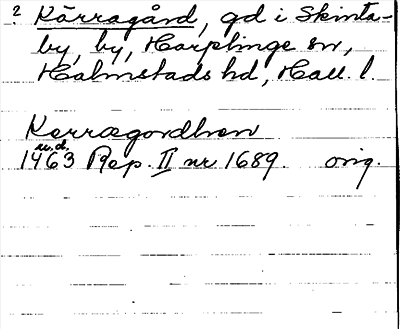 ? Kärragård, gd i Skinta-
by, by, Harplinge sn,
Halmstads hd, Hall. l.
Kerrægordhen
u.d.
1463 Rep. II nr 1689. orig.